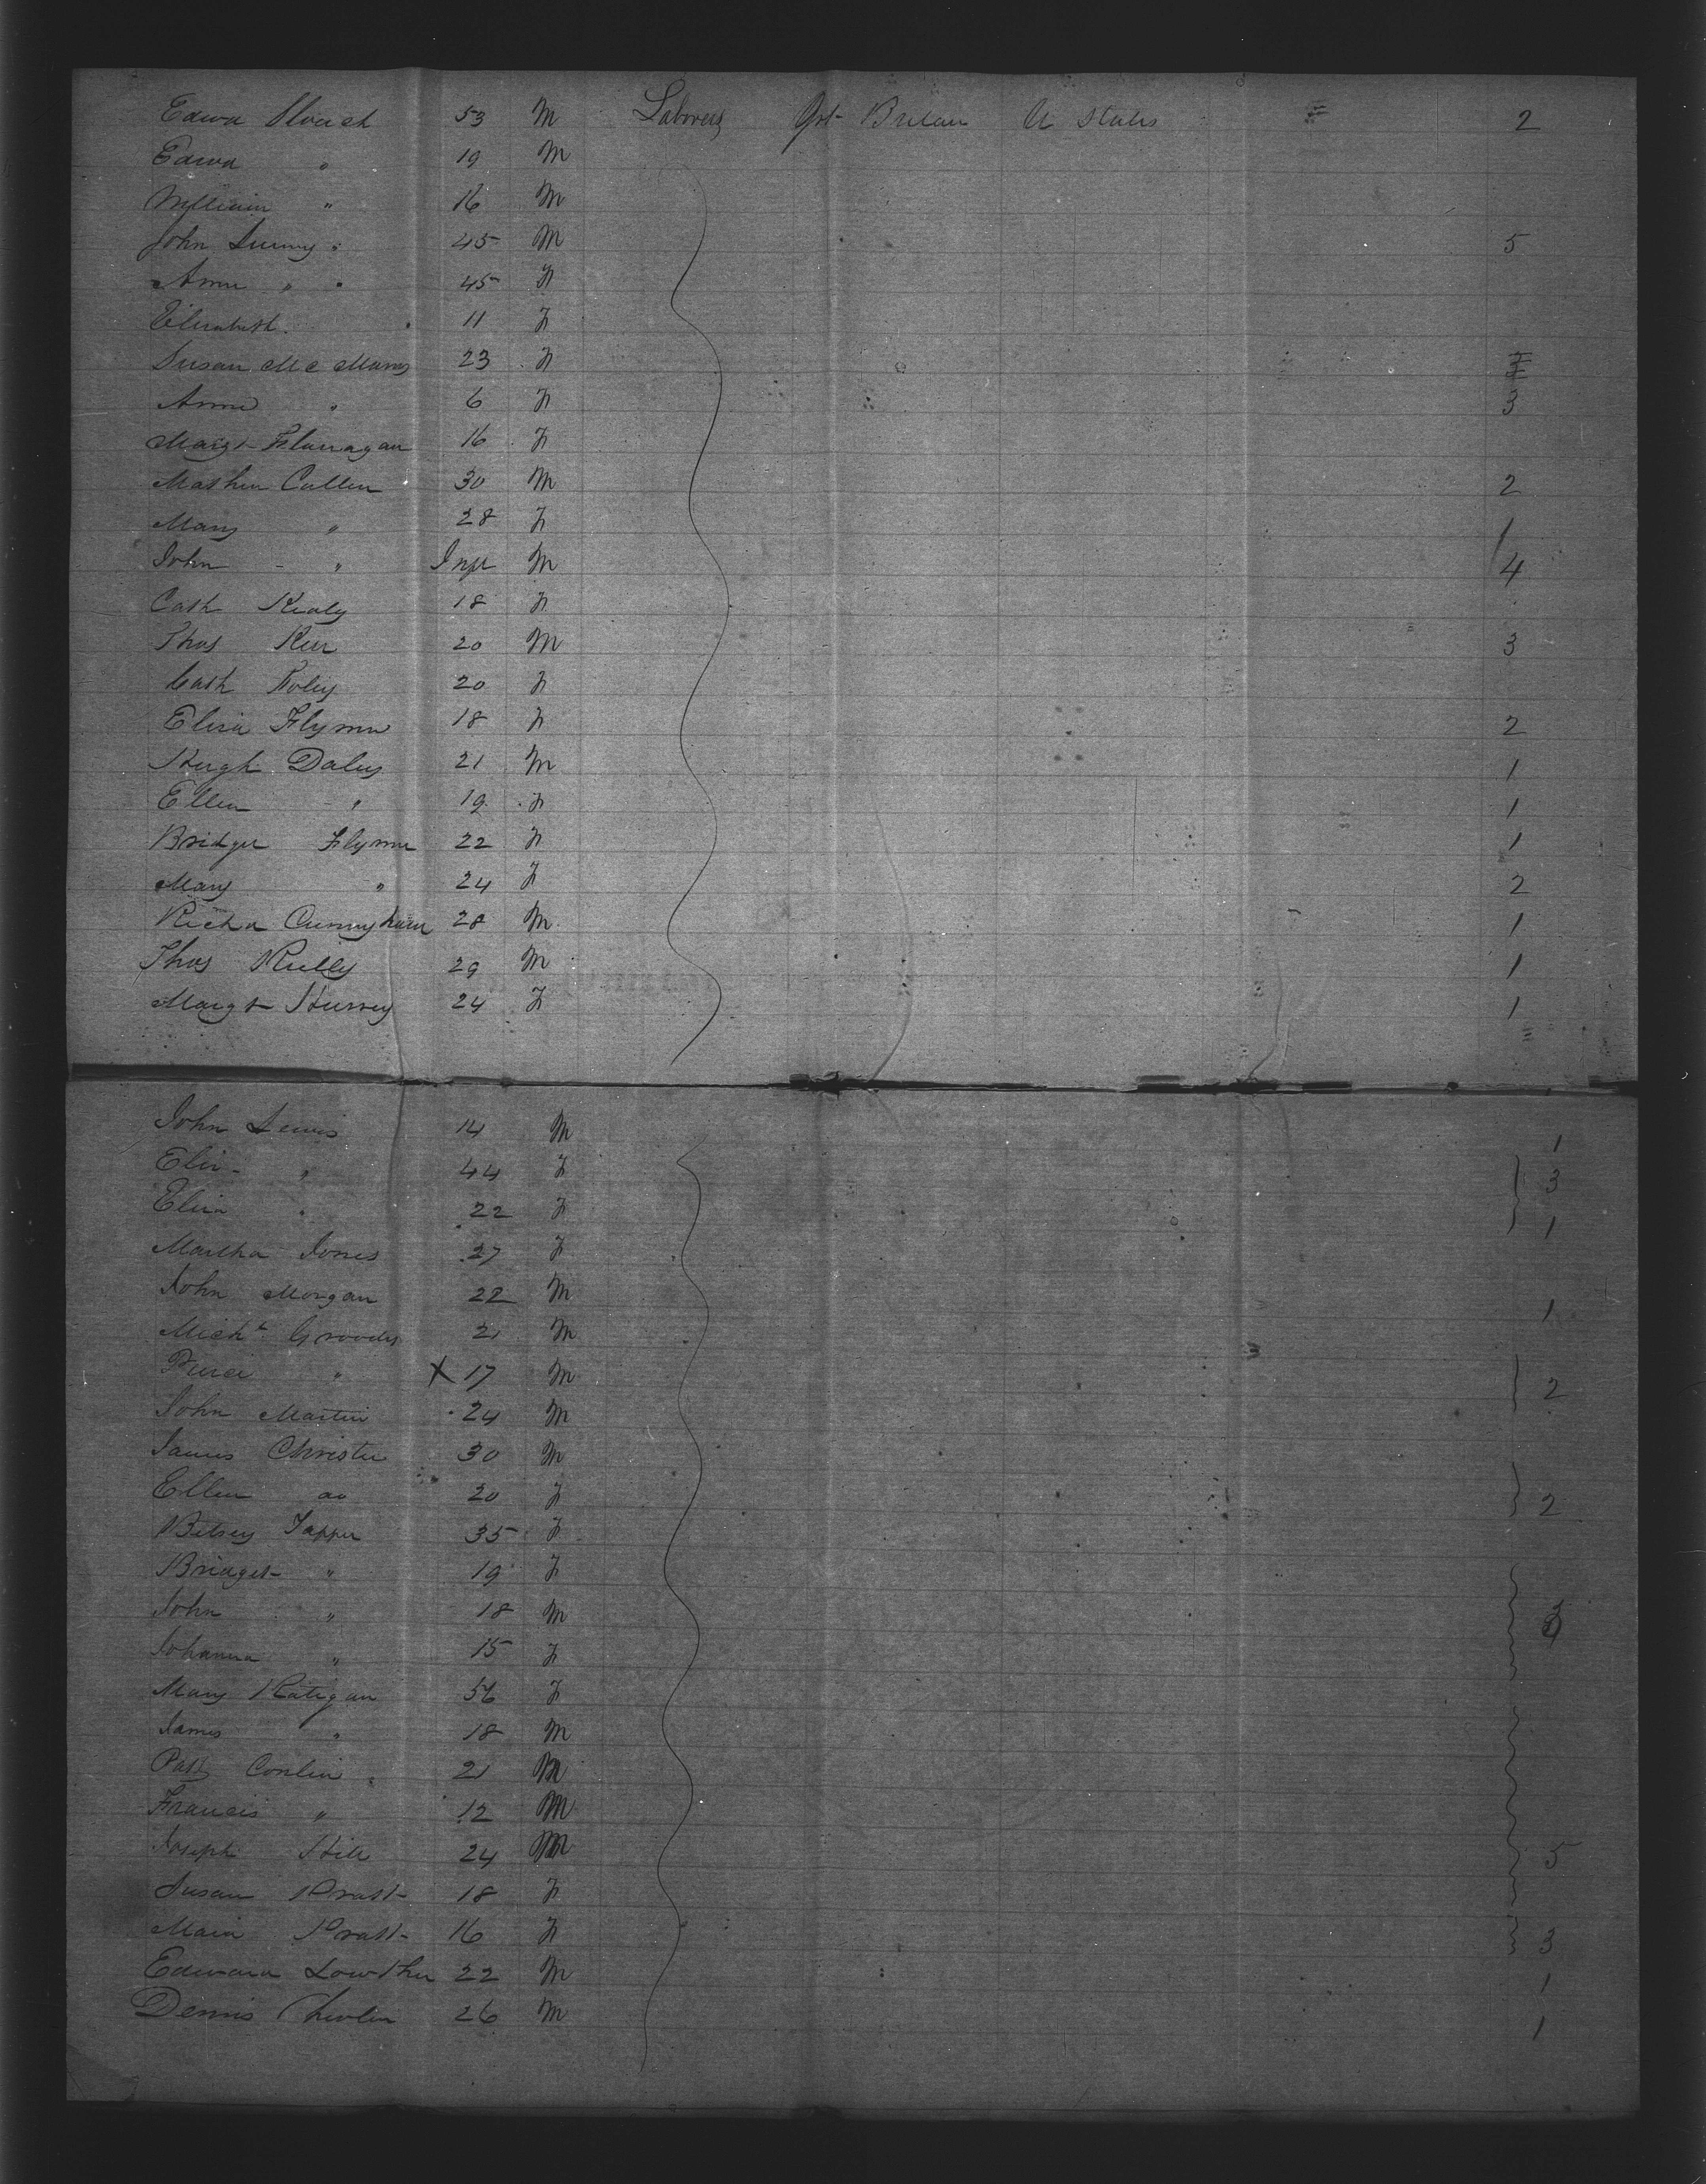 Edwd 53 M Laborers Grt Britain U States 2
Edwd " 19 M
William " 16 M
John 45 M 5
Anne " " 45 F
Elizabeth 11 F
Susan Mc 23 F
Anne " 6 F 3
Margt Flanagan 16 F
Mathew Cullen 30 M 2
Mary " 28 F
John - " Inft M 4
Cath Kealy 18 F
Thos Kerr 20 M 3
Cath Foley 20 F
Eliza Flynn 18 F 2
Hugh Daley 21 M 1
Ellen " 19 F 1
Bridget Flynn 22 F 1
Mary " 24 F 2
Richd Cunnyham 28 M 1
Thos Reilly 29 M 1
Margt Hussey 24 F 1
John Lewis 14 M 1
Eliz " 44 F 3
Eliza " 22 F 1
Martha Jones 27 F
John Morgan 22 M 1
Michl Groody 21 M
" X 17 M 2
John Martin 24 M
James Christie 30 M
Ellen do 20 F 2
Betsey Tapper 35 F
Bridget " 19 F
John " 18 M
Johanna " 15 F
Mary Ratigan 56 F
James " 18 M
Patk Conlin 21 M
Francis " 12 M
Joseph Hill 24 M 5
Susan Pratt 18 F
Maria Pratt 16 F 3
Edward Lowther 22 M 1
Dennis 26 M 1